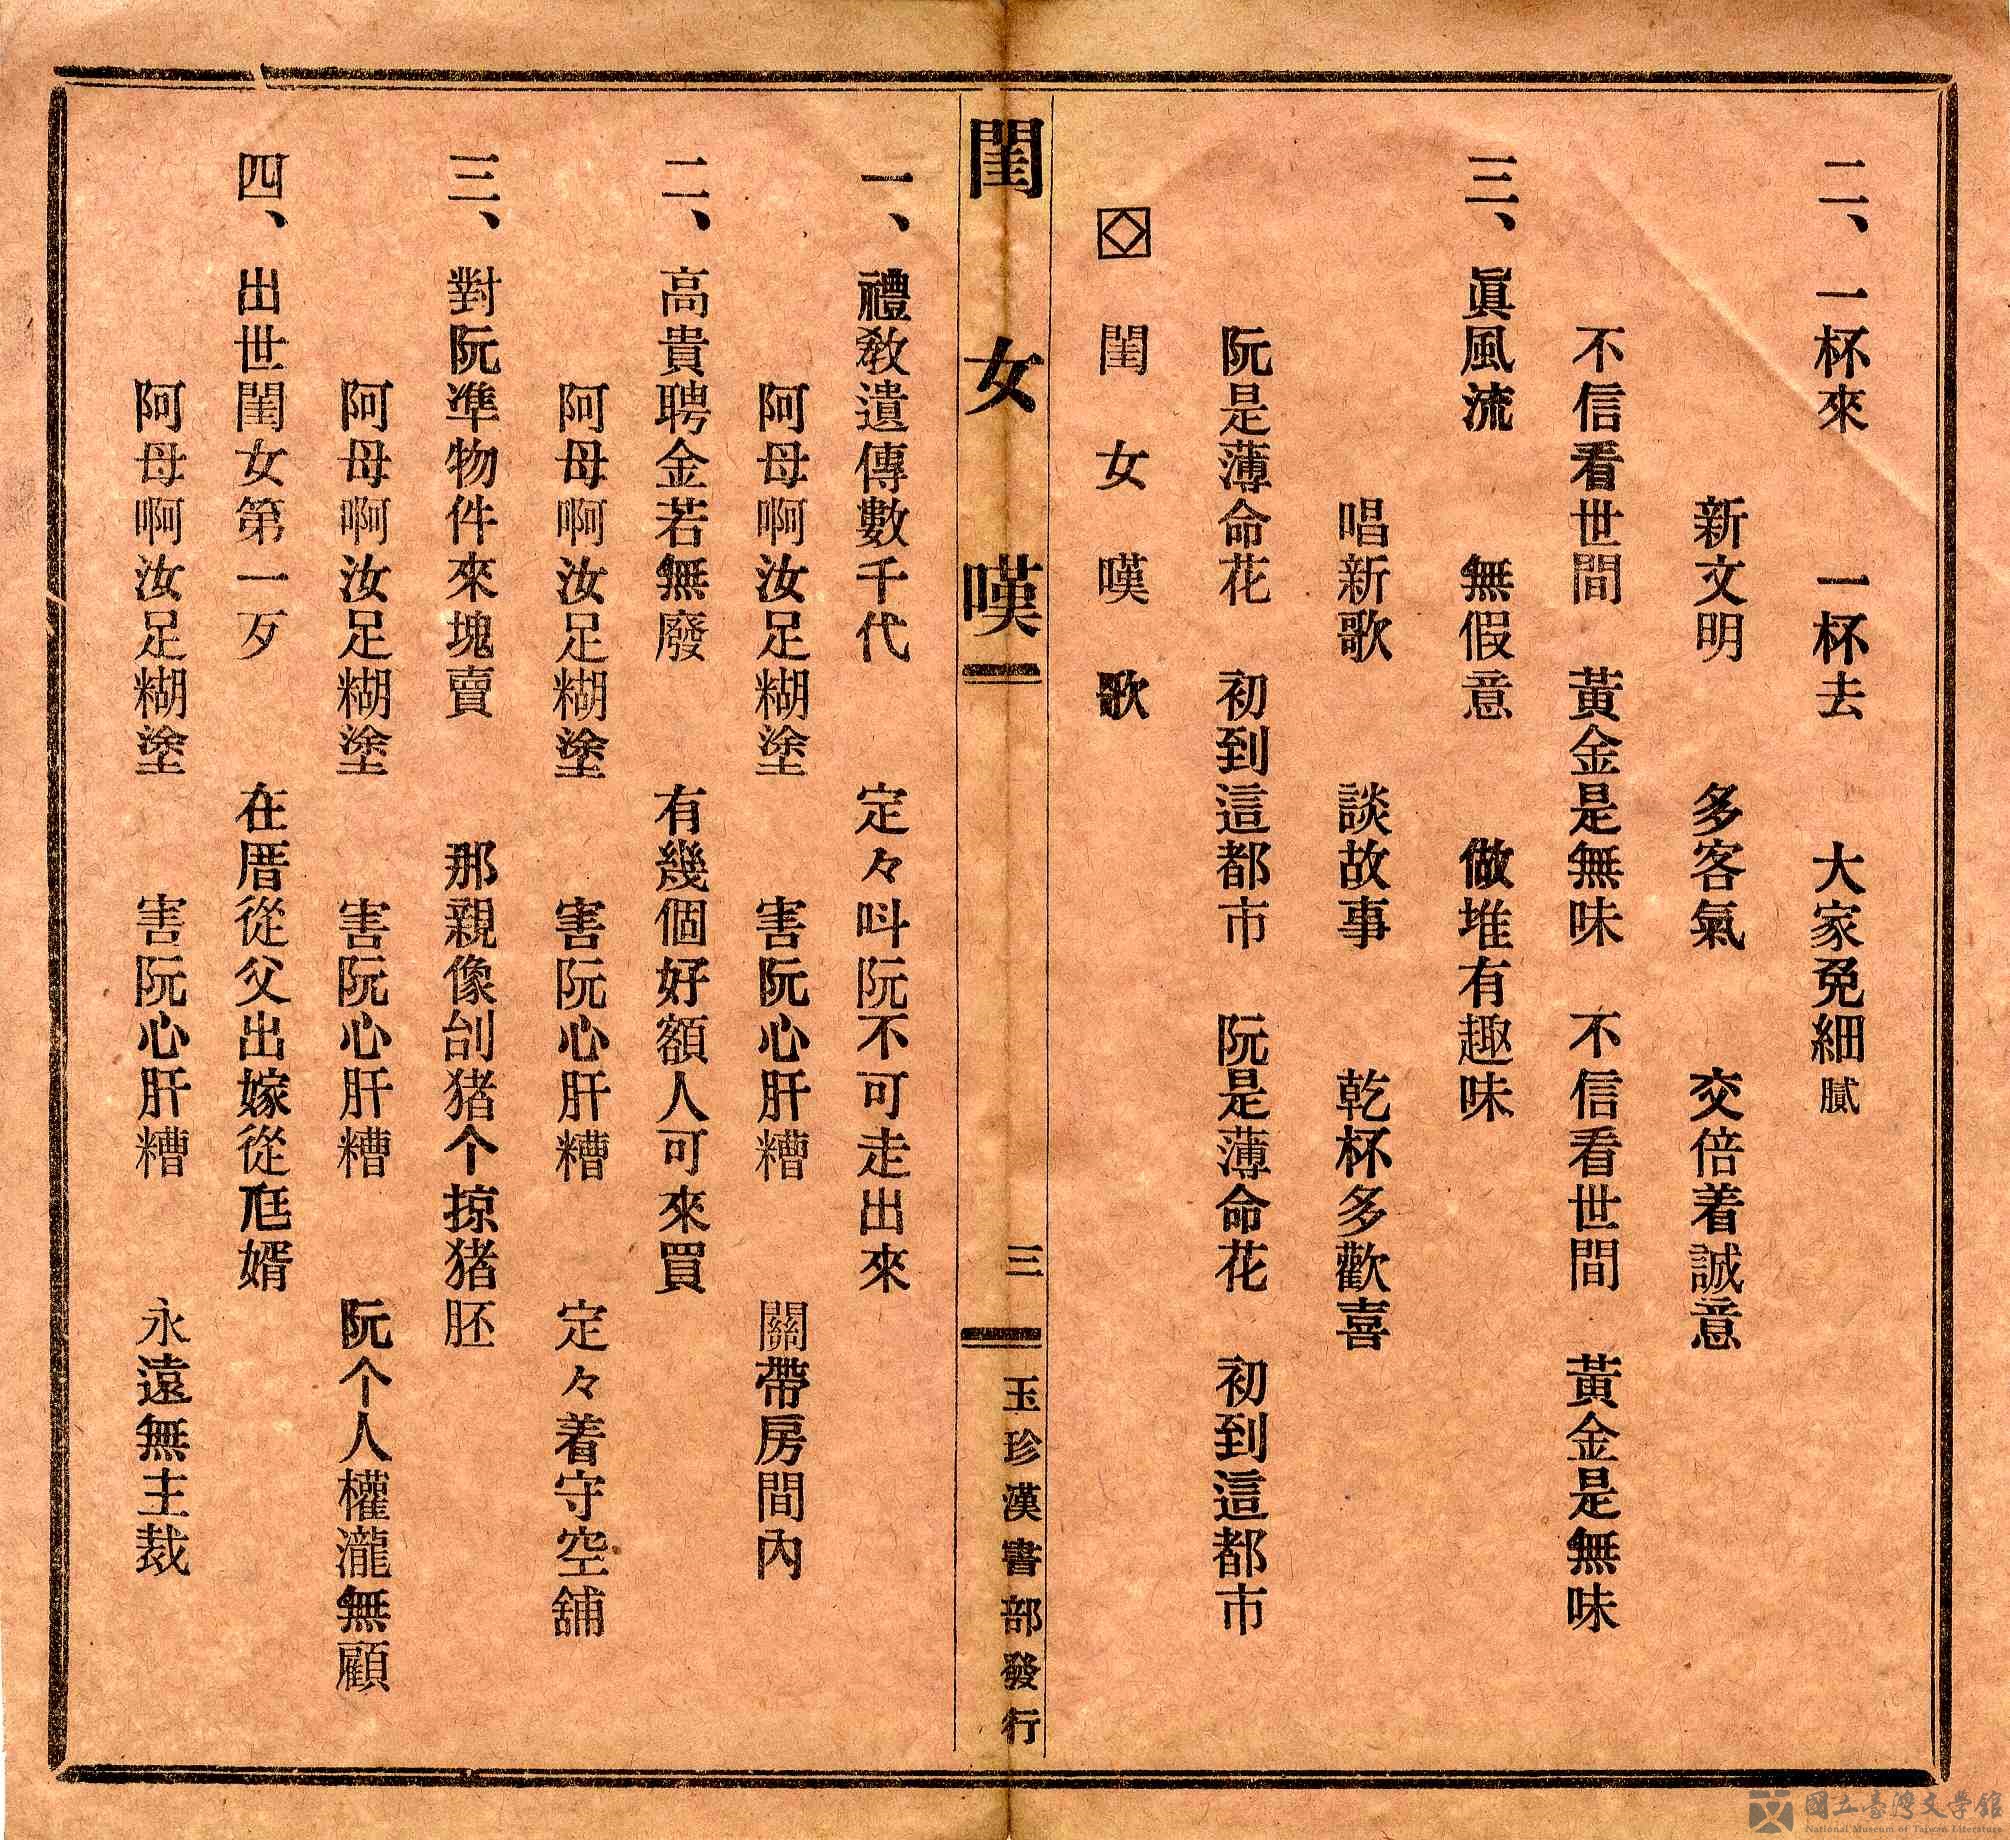 二、一杯來　一杯去　大家免細膩
新文明　多客氣　交倍着誠意
不信看世間　黃金是無味　不信看世間　黃金是無味
三、眞風流　無假意　做堆有趣味
唱新歌　談故事　乾杯多歡喜
阮是薄命花　初到這都市　阮是薄命花　初到這都市
閨女嘆歌
閨女嘆　三　玉珍漢書部發行
一、禮敎遺傳數千代　定々呌阮不可走出來
阿母啊汝足糊塗　害阮心肝糟　關帶房間內
二、高貴聘金若無廢　有幾個好額人可來買
阿母啊汝足糊塗　害阮心肝糟　定々着守空舖
三、對阮準物件來塊賣　那親像刣猪个掠猪胚
阿母啊汝足糊塗　害阮心肝糟　阮个人權瀧無顧
四、出世閨女第一歹　在厝從父出嫁從尫婿
阿母啊汝足糊塗　害阮心肝糟　永遠無主裁
國立臺灣文學館
National Museum of Taiwan Literature